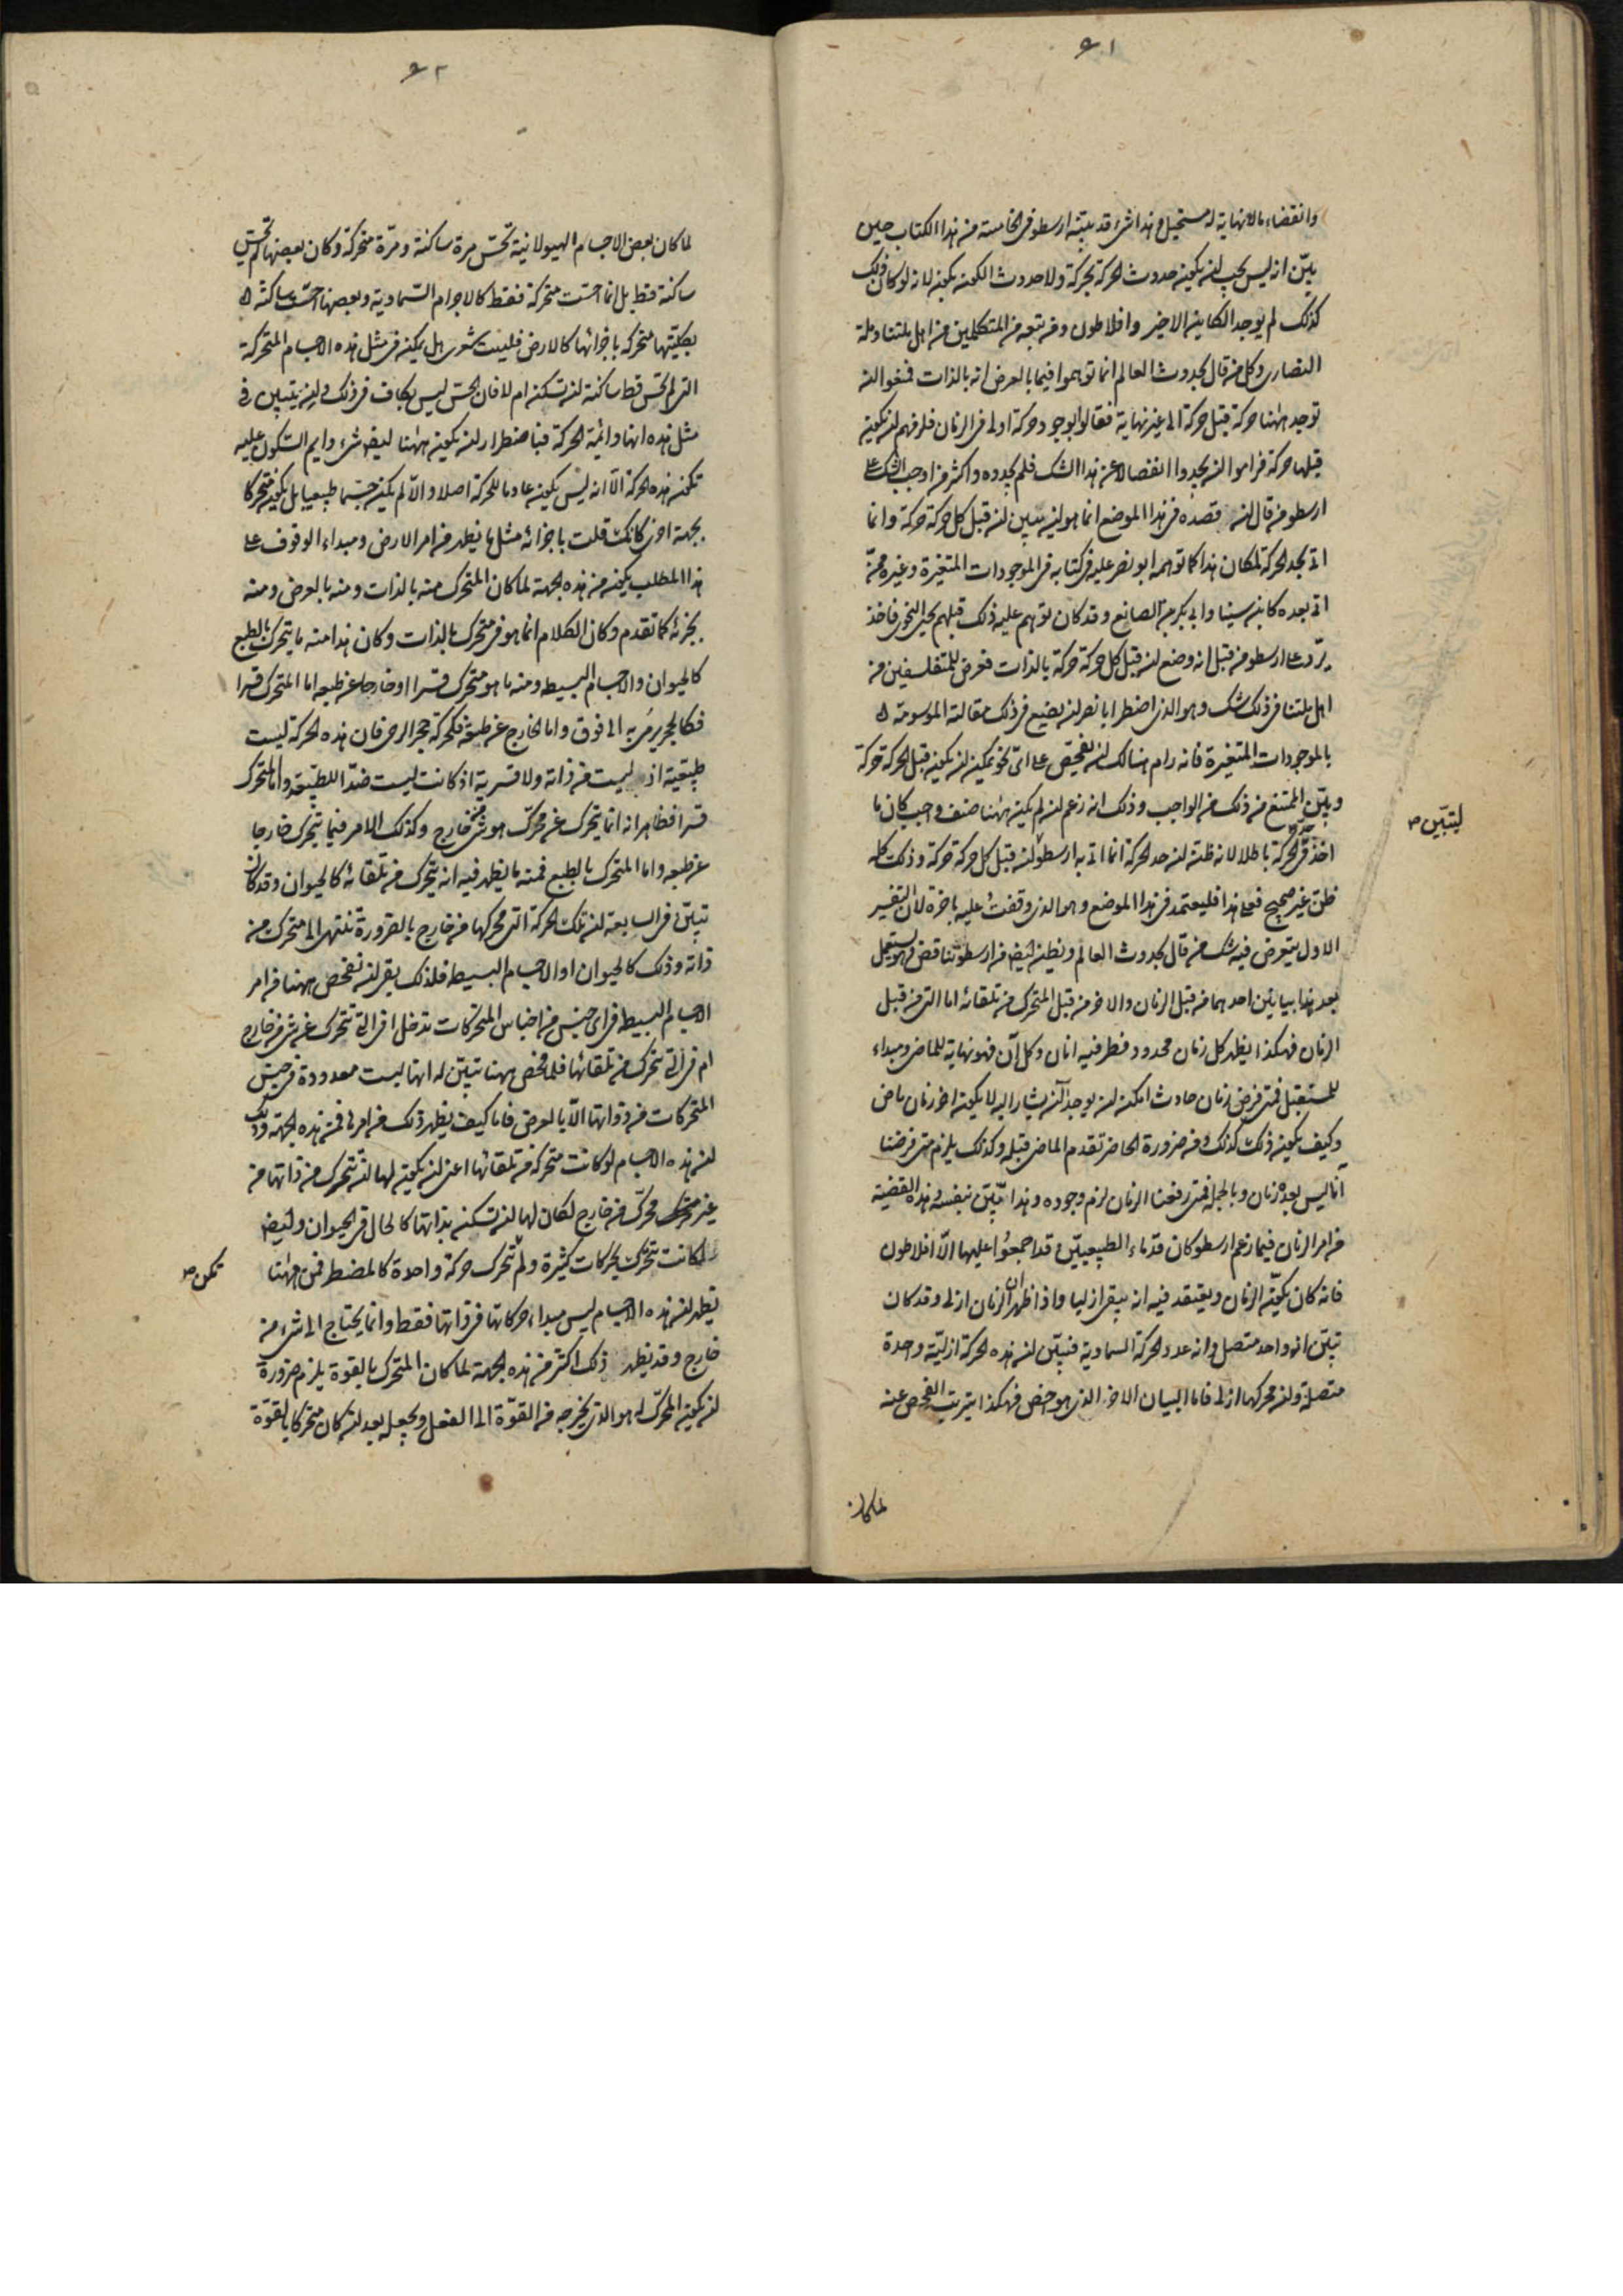 ٦١
وانقضاء مالانهاية له مستحيل وهذا شئ قد بينه ارسطو فى الخامسة من هذا الكتاب حين
بيّن انه ليس يجب ان يكون حدوث الحركة بحركة ولا حدوث الكون بكون لانه لو كان ذلك
كذلك لم يوجد الكاين الاخير وافلاطون ومن تبعه من المتكلمين من اهل ملتنا وملة
النصارى وكل من قال بحدوث العالم انما توهموا فيما بالعرض انه بالذات فمنعوا ان
توجد ههنا حركة قبل حركة الى غير نهاية فقالوا بوجود حركة اولى فى الزمان فلزمهم ان يكون
قبلها حركة فراموا ان يجدوا انفصالا عن هذا الشك فلم يجدوه واكثر من اوجب الشك على
ارسطو من قال ان قصده فى هذا الموضع انما هو ان يبين ان قبل كل حركة حركة وانما
اتى بحد الحركة لمكان هذا كما توهمه ابو نصر عليه فى كتابه فى الموجودات المتغيرة وغيره ممن
اتى بعده كابن سينا وابى بكر بن الصائغ وقد كان توهم عليه ذلك قبلهم يحيى النحوى فاخذ
يرد على ارسطو من قبل انه وضع ان قبل كل حركة حركة بالذات فعرض للمتفلسفين من
اهل ملتنا فى ذلك شك وهو الذى اضطر ابا نصر ان يضع فى ذلك مقالته الموسومة
بالموجودات المتغيرة فانه رام هنالك ان يفحص على اى نحو يمكن ان يكون قبل الحركة حركة
ويبيّن الممتنع من ذلك من الواجب وذلك انه زعم ان لم يكن ههنا صنف واجب كان ما
ليتبيّن صح
اخذ فى حد الحركة باطلا لانه ظن ان حد الحركة انما اتى به ارسطو لان قبل كل حركة حركة وذلك كله
ظن غير صحيح فعلى هذا فليعتمد فى هذا الموضع وهو الذى وقفت عليه باخرة لان التفسير
الاول يتعرض فيه شك من قال بحدوث العالم ويظن ايضا فى ارسطو تناقض وهو يستعمل
بعد هذا بيانين احدهما من قبل الزمان والاخر من قبل المتحرك من تلقائه اما التى من قبل
الزمان فهكذا يظهر كل زمان محدود فطرفيه انان وكل آن فهو نهاية للماضى ومبداء
للمستقبل فمتى فرض زمان حادث امكن ان يوجد آن يشار اليه لا يكون اخر زمان ماض
وكيف يكون ذلك كذلك ومن ضرورة الحاضر تقدم الماضى قبله وكذلك يلزم متى فرضنا
آنا ليس بعده زمان وبالجملة فمتى رفعنا الزمان لزم وجوده وهذا بيّن بنفسه وهذه القضية
من امر الزمان فيما زعم ارسطو كان قدماء الطبيعيّين قد اجمعوا عليها الّا افلاطون
فانه كان يكوّن الزمان ويعتقد فيه انه يبقى ازليا واذا ظهر ان الزمان ازلى وقد كان
تبيّن انه واحد متصل وانه عدد الحركة السماوية فتبيّن ان هذه الحركة ازلية واحدة
متصلة وان محركها ازلى فاما البيان الاخر الذى هو اخص فهكذا يترتب الفحص عنه
لما كان
٦٢
لما كان بعض الاجسام الهيولانية تحسّ مرة ساكنة ومرّة متحركة وكان بعضها لم تحسّ
ساكنة قط بل انما احسّت متحركة فقط كالاجرام السّماوية وبعضها احسّت ساكنة
بكليّتها متحركة باجزائها كالارض فليت شعرى هل يمكن فى مثل هذه الاجسام المتحركة
التى لم تحسّ قط ساكنة ان تسكن ام لا فان الحسّ ليس بكاف فى ذلك وان يتبين فى
مثل هذه انها دائمة الحركة فباضطرار ان يكون ههنا ايضا شئ دايم السّكون عليه
تكون هذه الحركة الّا انه ليس يكون عادما للحركة اصلا والّا لم يكن جسما طبيعيا بل يكون متحركا
بجهة اخرى كانك قلت باجزائه مثل ما يظهر من امر الارض ومبداء الوقوف على
هذا المطلب يكون من هذه الجهة لما كان المتحرك منه بالذات ومنه بالعرض ومنه
بجزئه كما تقدم وكان الكلام انما هو فى متحرك بالذات وكان هذا منه ما يتحرك بالطبع
كالحيوان والاجسام البسيطة ومنه ما هو متحرك قسرا او خارجا عن طبعه اما المتحرك قسرا
فكالحجر يرمى به الى فوق واما الخارج عن طبعه فكحركة حجر الرحى فان هذه الحركة ليست
طبيعية اذ ليست من ذاته ولا قسرية اذ كانت ليست ضدّا للطبيعة واما المتحرك
قسرا فظاهر انه انما يتحرك عن محرّك هو شئ من خارج وكذلك الامر فيما يتحرك خارجا
عن طبعه واما المتحرك بالطبع فمنه ما يظهر فيه انه يتحرك من تلقائه كالحيوان وقد كان
تبيّن فى السابعة ان تلك الحركة التى محركها من خارج بالضرورة تنتهى الى متحرك من
ذاته وذلك كالحيوان او الاجسام البسيطة فلذلك بقى ان نفحص ههنا من امر
الاجسام البسيطة فى اى جنس من اجناس المتحركات تدخل افى التى تتحرك عن شئ من خارج
ام فى التى تتحرك من تلقائها فلما فحص ههنا تبيّن له انها ليست معدودة فى جنس
المتحركات من ذواتها الّا بالعرض فاما كيف يظهر ذلك من امرها فمن هذه الجهة وذلك
ان هذه الاجسام لو كانت متحركة من تلقائها اعنى ان يكون لها ان تتحرك من ذاتها من
غير محرّك من خارج لكان لها ان تسكن بذاتها كالحال فى الحيوان وايضا
لكانت تتحرّك بحركات كثيرة ولم تتحرك حركة واحدة كالمضطر فمن ههنا
تمكن صح
يظهر ان هذه الاجسام ليس مبداء حركاتها فى ذاتها فقط وانما يحتاج الى شئ من
خارج وقد يظهر ذلك اكثر من هذه الجهة لما كان المتحرك بالقوة يلزم ضرورة
ان يكون المحرّك له هو الذى يخرجه من القوّة الى الفعل ويجعله بعد ان كان متحركا بالقوّة